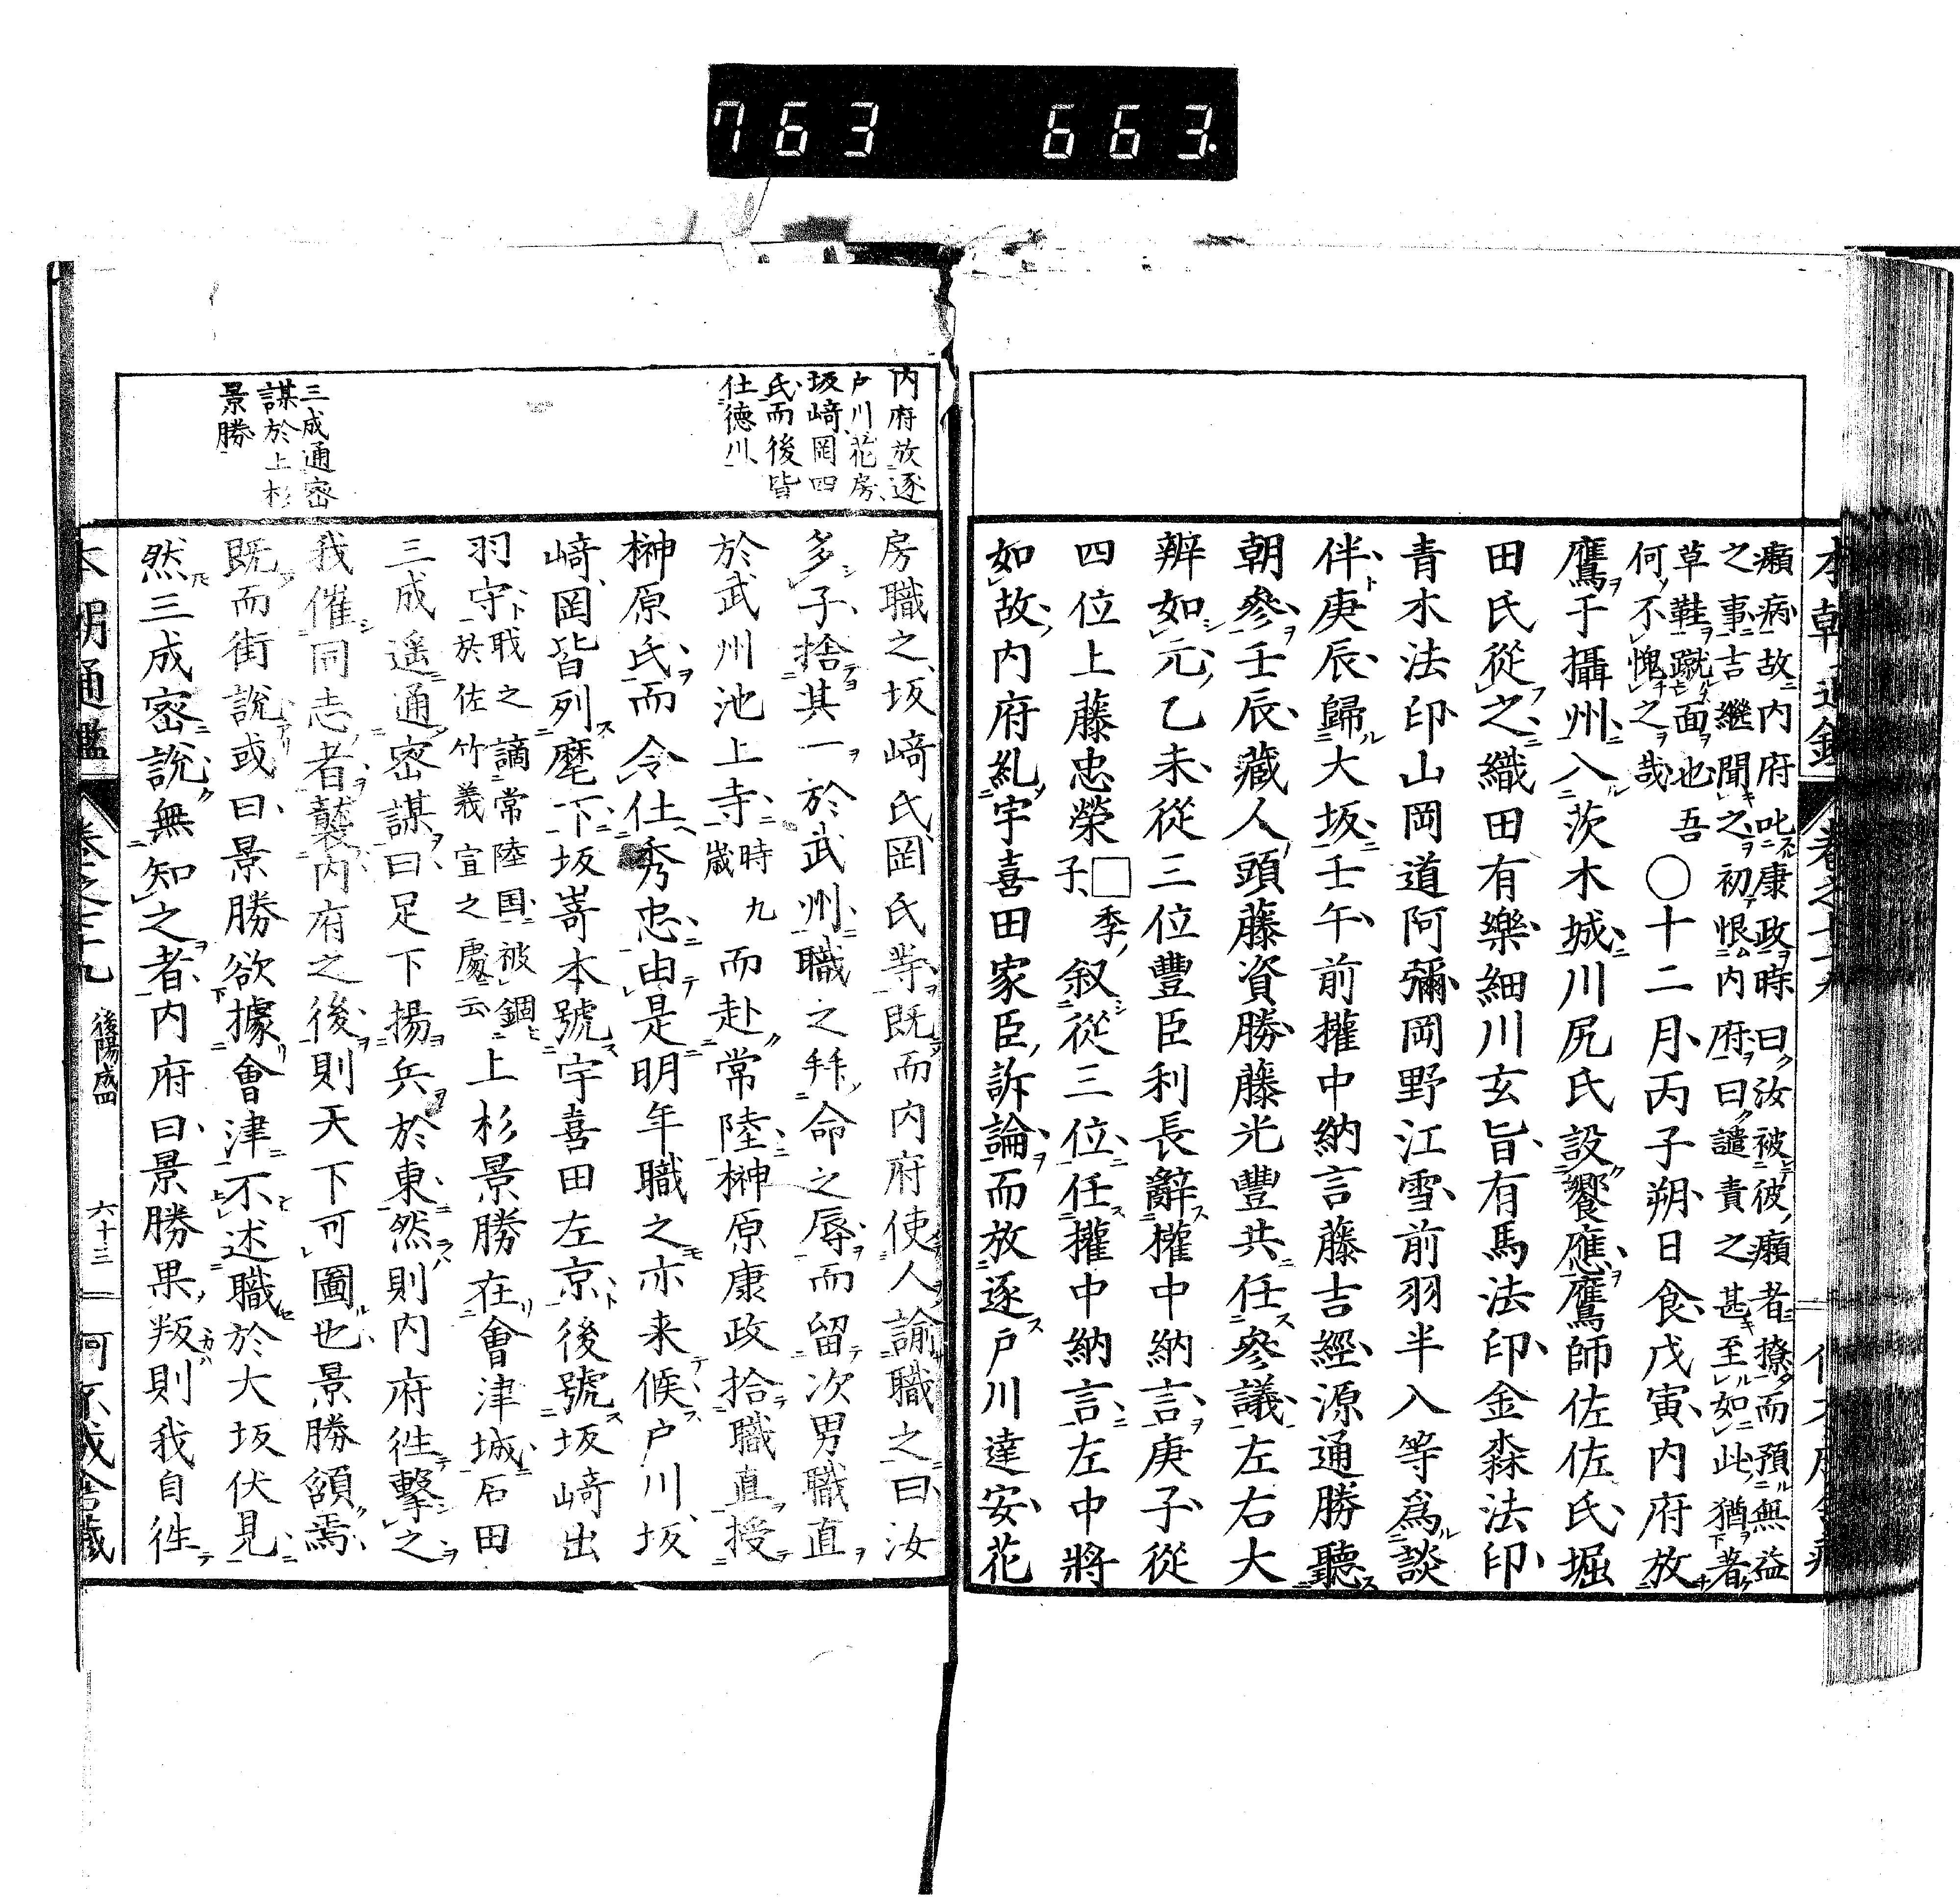 763 663.
癩病故内府叱康政時曰汝被彼癩者撩而預無益
之事吉継聞之初恨内府曰譴責之甚至如此猶著
草鞋蹴面也吾
何不愧之哉
○十二月丙子朔日食戊寅内府放
鷹于攝州八茨木城川尻氏設饗應鷹師佐佐氏堀
田氏從之織田有樂細川玄旨有馬法印金森法印
青木法印山岡道阿彌岡野江雪前羽半入等爲談
伴庚辰歸大坂壬午前權中納言藤吉經源通勝聽
朝參壬辰藏人頭藤資勝藤光豐共任參議左右大
辨如元乙未從三位豐臣利長辭權中納言庚子從
四位上藤忠榮□季子叙從三位任權中納言左中將
如故内府糺宇喜田家臣訴論而放逐戸川達安花
内府放逐
戸川花房
坂﨑岡四
氏而後皆
仕徳川
房職之坂﨑氏岡氏等既而内府使人諭職之曰汝
多子捨其一於武州職之拜命之辱而留次男職直
於武州池上寺時九歳而赴常陸榊原康政拾職直授
榊原氏而令仕秀忠由是明年職之亦来候戸川坂
﨑岡皆列麾下坂嵜本號宇喜田左京後號坂﨑出
羽守戢之謫常陸国被錮於佐竹義宣之處云上杉景勝在會津城石田
三成遥通密謀曰足下揚兵於東然則内府徃擊之
我催同志者襲内府之後則天下可圖也景勝頷焉
既而街說或曰景勝欲據會津不述職於大坂伏見
然三成密說無知之者内府曰景勝果叛則我自徃
三成通密
謀於上杉
景勝
本朝通鑑 卷之七十九 後陽成四 六十三